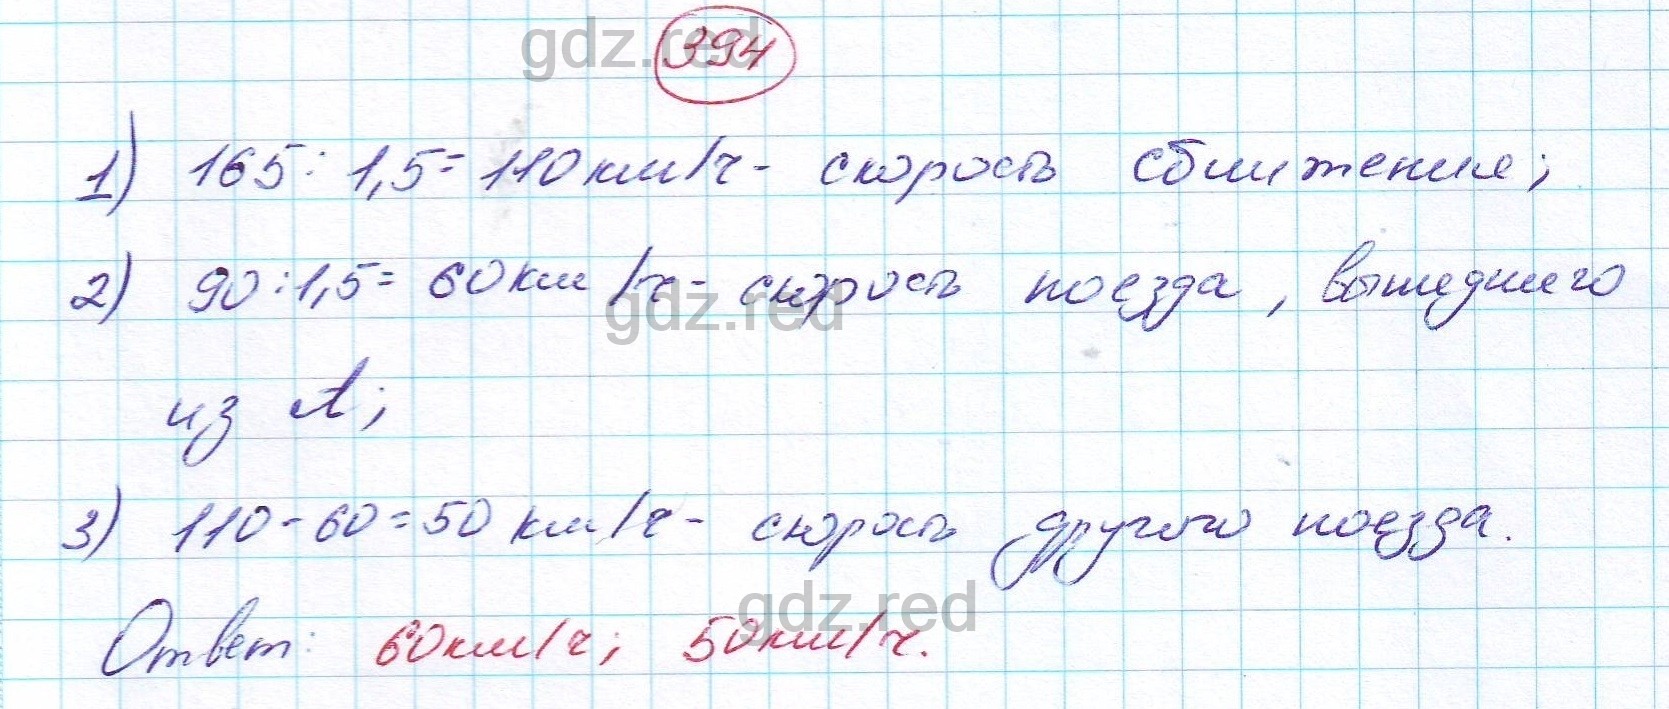 gdz.red
394
1) 165 : 1,5 = 110 км/ч - скорость сближения;
2) 90 : 1,5 = 60 км/ч - скорость поезда, вышедшего
gdz.red
из А;
3) 110 - 60 = 50 км/ч - скорость другого поезда.
gdz.red
Ответ: 60 км/ч; 50 км/ч.